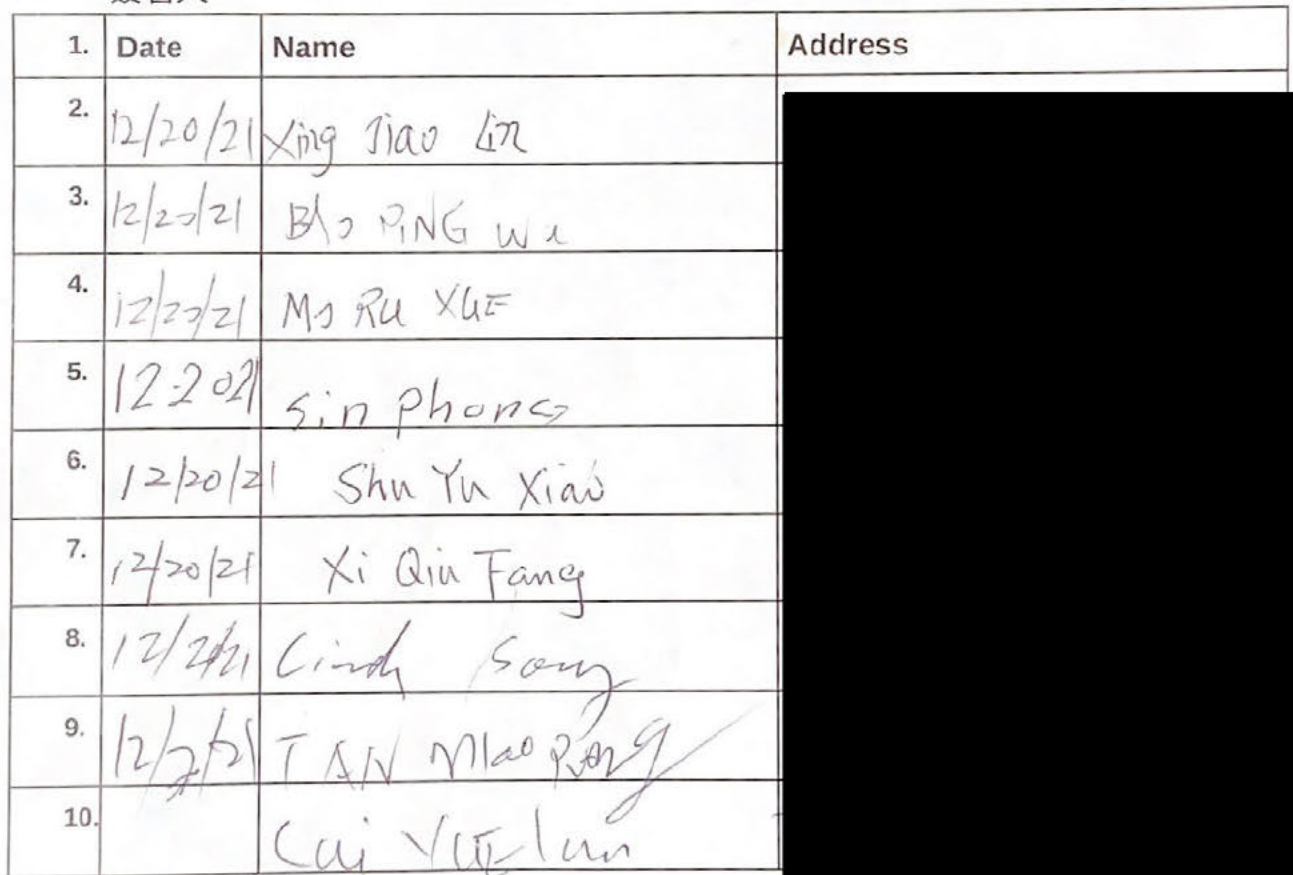 1. Date Name Address
2. 12/20/21 Xing Jiao Lin
3. 12/20/21 BAO PING Wu
4. 12/20/21 Mo RU XUE
5. 12-2021 Sin Phong
6. 12/20/21 Shu Yu Xiao
7. 12/20/21 Xi Qiu Fang
8. Cindy Song
9. TAN Miao
10. Cai YUE lun